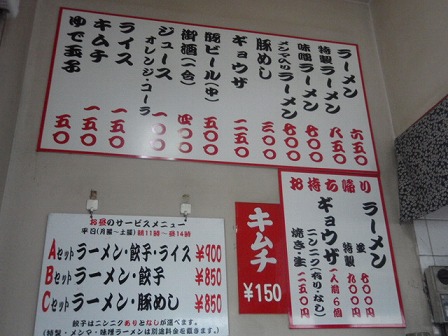 ラーメン 六五〇
特製ラーメン 八五〇
味噌ラーメン 七〇〇
メンマ入りラーメン 七〇〇
豚めし 三〇〇
ギョウザ 二五〇
瓶ビール(中) 五〇〇
御酒(一合) 四〇〇
ジュース オレンジ・コーラ 一〇〇
ライス 一五〇
キムチ 一五〇
ゆで玉子 五〇
お昼のサービスメニュー
平日(月曜~土曜) 朝11時~昼14時
Aセット ラーメン・餃子・ライス ¥900
Bセット ラーメン・餃子 ¥850
Cセット ラーメン・豚めし ¥850
餃子はニンニクありとなしが選べます。
(特製・メンマ・味噌ラーメンは別途料金を戴きます。)
キムチ
¥150
お持ち帰り
ラーメン
並 七〇〇円
特製 九〇〇円
ギョウザ
ニンニク(有り・なし)
一人前 6個
焼き・生 二五〇円